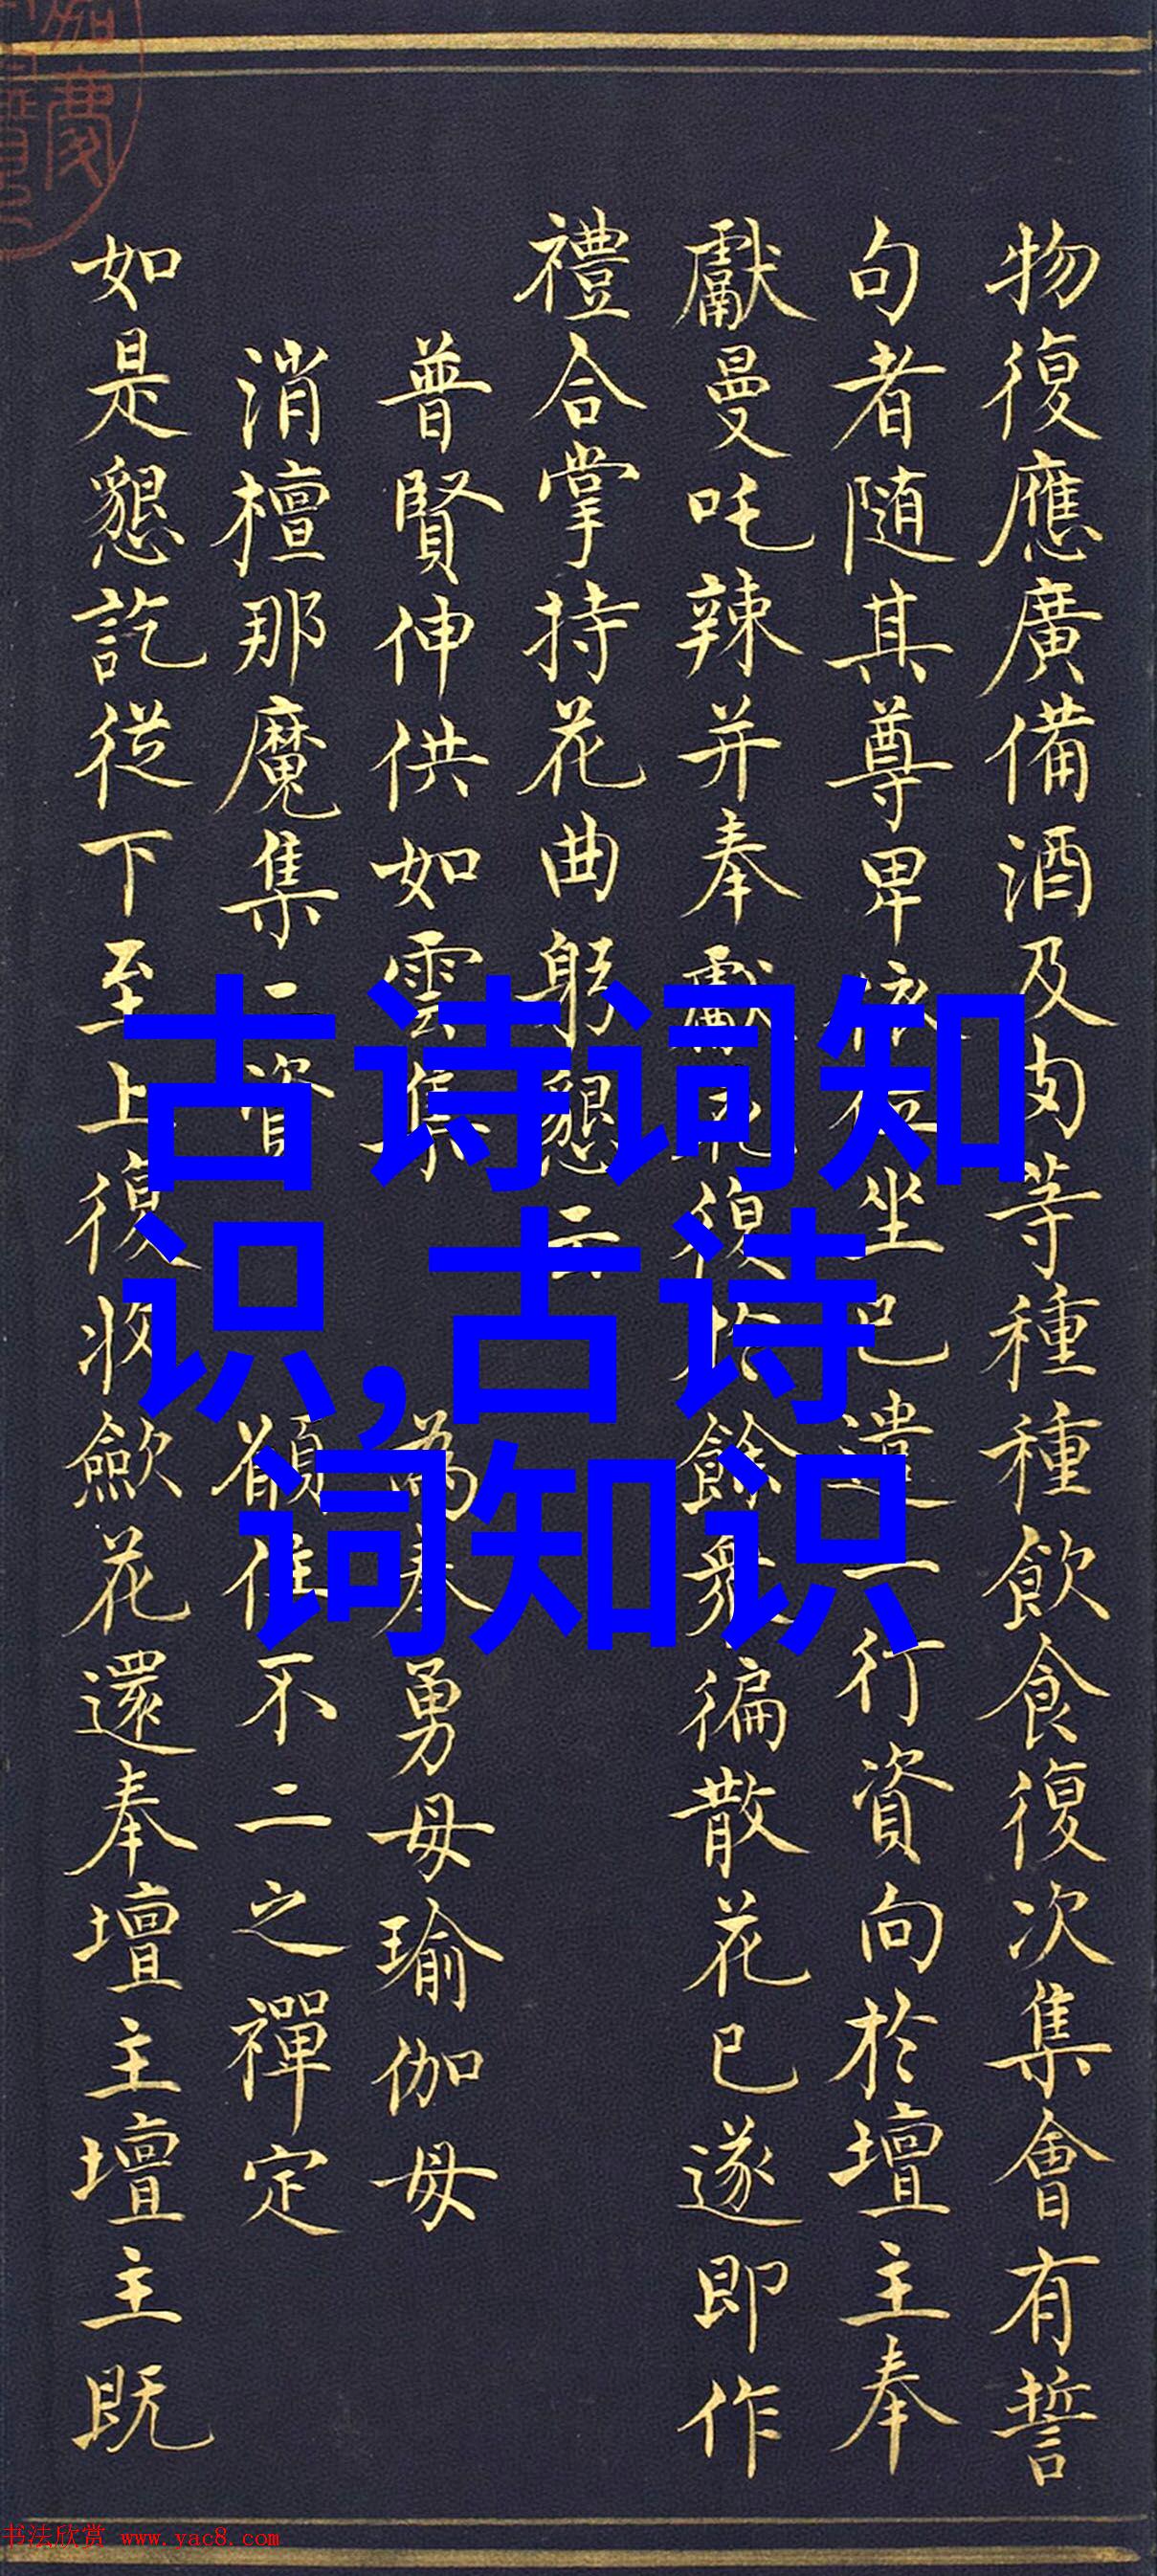 物復應廣備酒及肉等種種飲食復次集會有誓
句者随其尊卑依位坐已遣一行資向於壇主奉
獻曼吒辣并奉獻訖復於餘衆徧散花已遂即作
禮合掌持花曲躬懇云
普賢伸供如雲集 為奉勇母瑜伽母
消檀那魔集一資 願住不二之禪定
如是懇訖從下至上復收歛花還奉壇主壇主既
古诗词知
识,古诗
词知识
书法欣赏 www.yac8.com